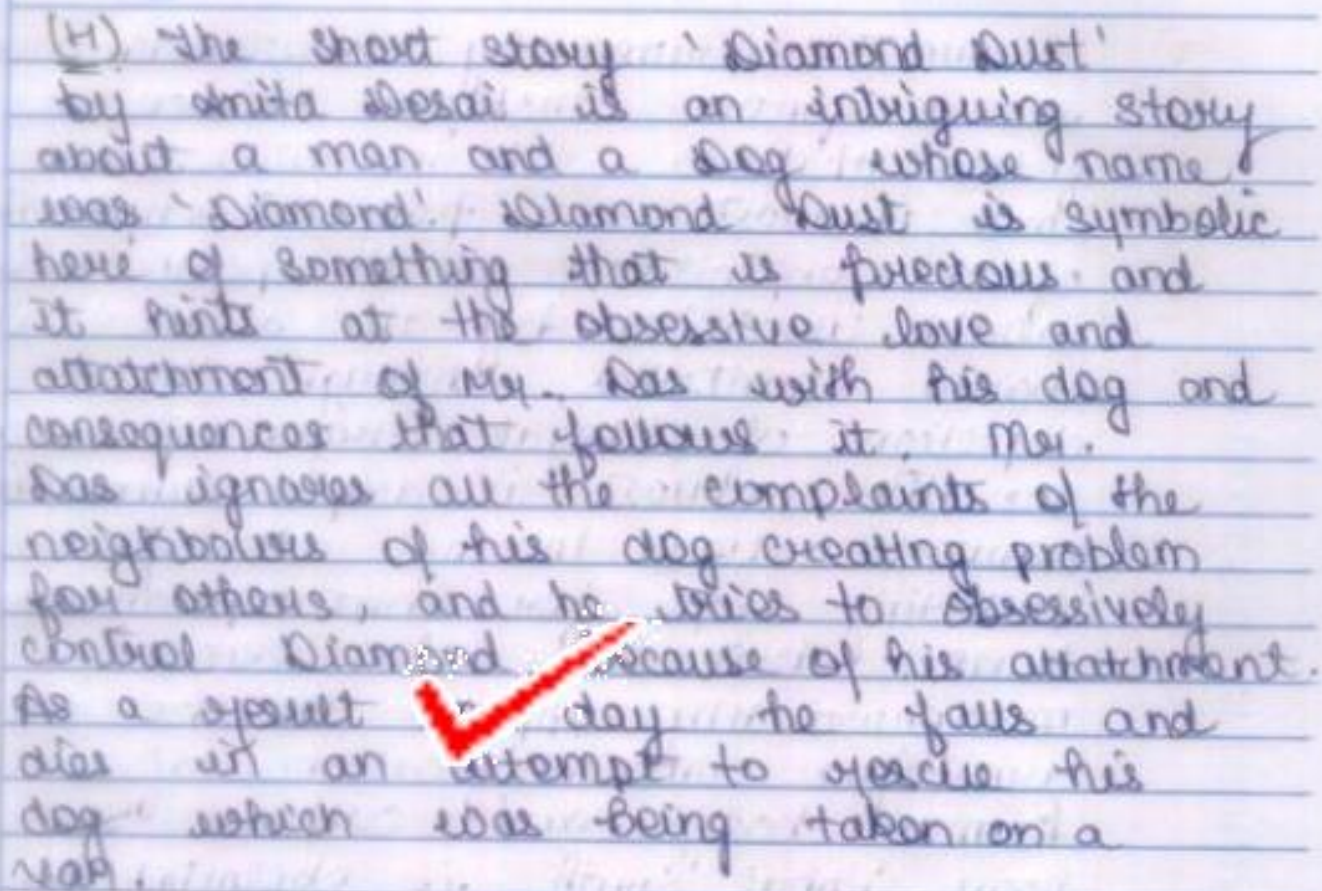 (H) The short story 'Diamond Dust'
by Anita Desai is an intriguing story
about a man and a Dog whose name
was 'Diamond'. Diamond Dust is symbolic
here of something that is precious and
it hints at the obsessive love and
attatchment of Mr. Das with his dog and
consequences that follows it. Mr.
Das ignores all the complaints of the
neighbours of his dog creating problem
for others, and he tries to obsessively
control Diamond because of his attatchment.
As a result day he falls and
dies in an attempt to rescue his
dog which was being taken on a
van.